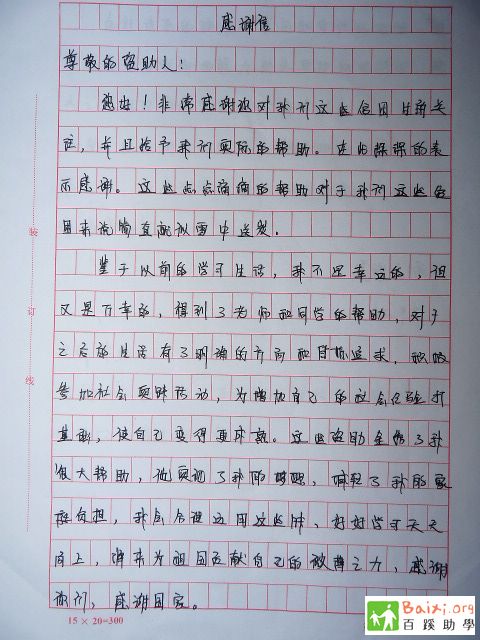 感谢信
尊敬的资助人：
您好！非常感谢您对我们这些贫困生的关
注，并且给予我们实际的帮助。在此深深的表
示感谢。这些点点滴滴的帮助对于我们这些贫
困来说简直就似雪中送炭。
鉴于以前的学习生活，我不是幸运的，但
又是万幸的，得到了老师和同学的帮助，对于
之后的生活有了明确的方向和目标追求，积极
参加社会实践活动，为增加自己的社会经验打
基础，使自己变得更成熟。这些资助金给了我
很大帮助，他实现了我的梦想，减轻了我的家
庭负担，我会合理运用这些钱，好好学习天天
向上，将来为祖国贡献自己的微薄之力，感谢
你们，感谢国家。
装
订
线
15 × 20=300
Baixi.org
百蹊助學